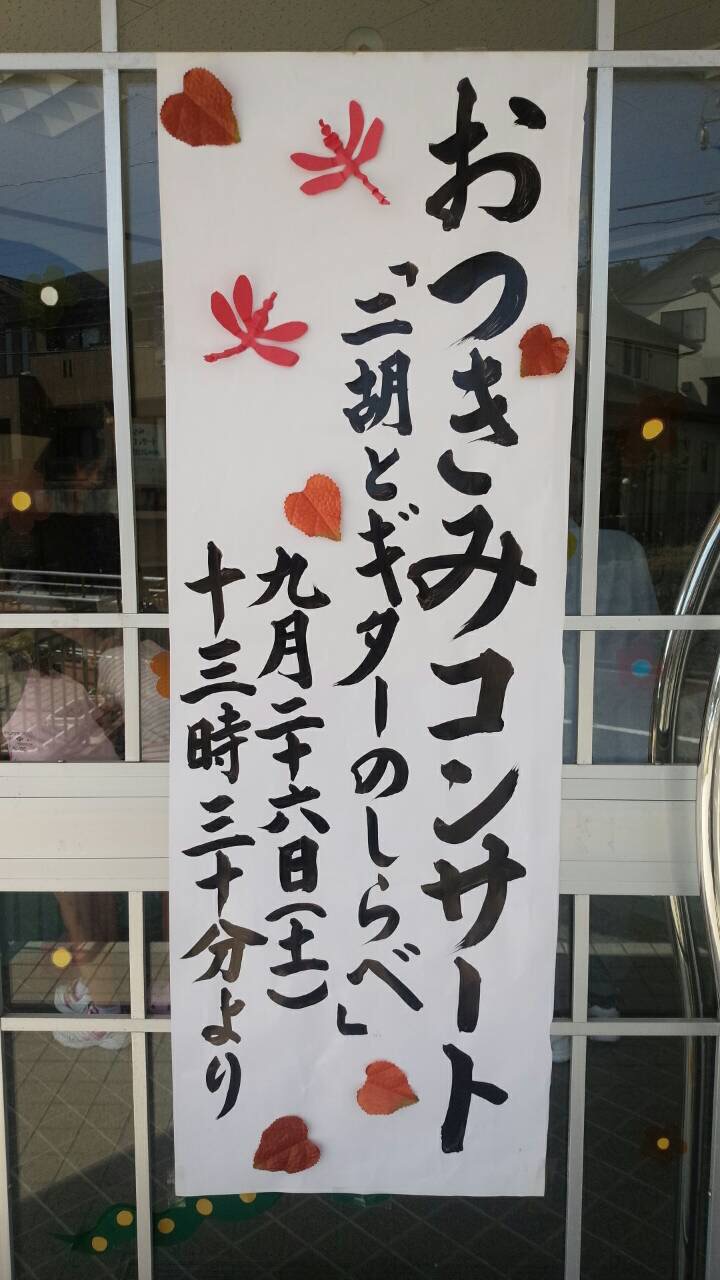 おつきみコンサート
「二胡とギターのしらべ」
九月二十六日(土)
十三時三十分より